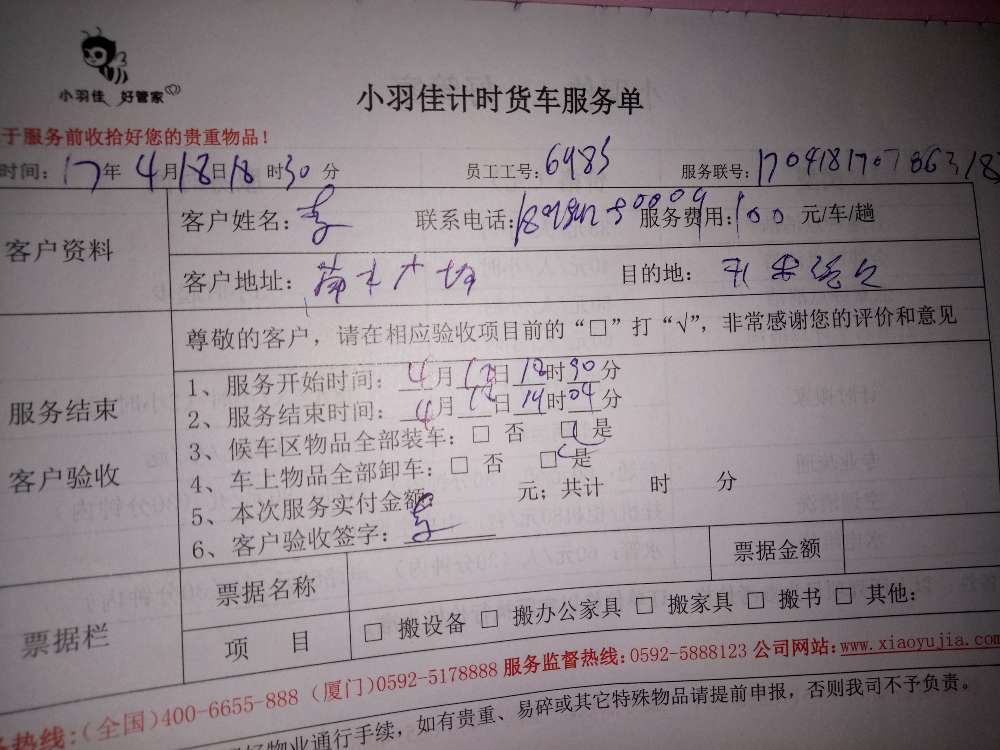 小羽佳 好管家
小羽佳计时货车服务单
于服务前收拾好您的贵重物品！
时间：17年4月18日18时30分 员工工号：6485 服务联号：
客户资料
客户姓名： 联系电话： 服务费用：100元/车/趟
客户地址： 广场 目的地：
尊敬的客户，请在相应验收项目前的“□”打“√”，非常感谢您的评价和意见
服务结束
客户验收
1、服务开始时间：4月日时分
2、服务结束时间：4月日14时04分
3、候车区物品全部装车：□ 否 □ 是
4、车上物品全部卸车：□ 否 □ 是
5、本次服务实付金额： 元；共计 时 分
6、客户验收签字：
票据栏
票据名称 票据金额
项 目 □ 搬设备 □ 搬办公家具 □ 搬家具 □ 搬书 □ 其他：
热线：（全国）400-6655-888（厦门）0592-5178888 服务监督热线：0592-5888123 公司网站：www.xiaoyujia.com
物业通行手续，如有贵重、易碎或其它特殊物品请提前申报，否则我司不予负责。